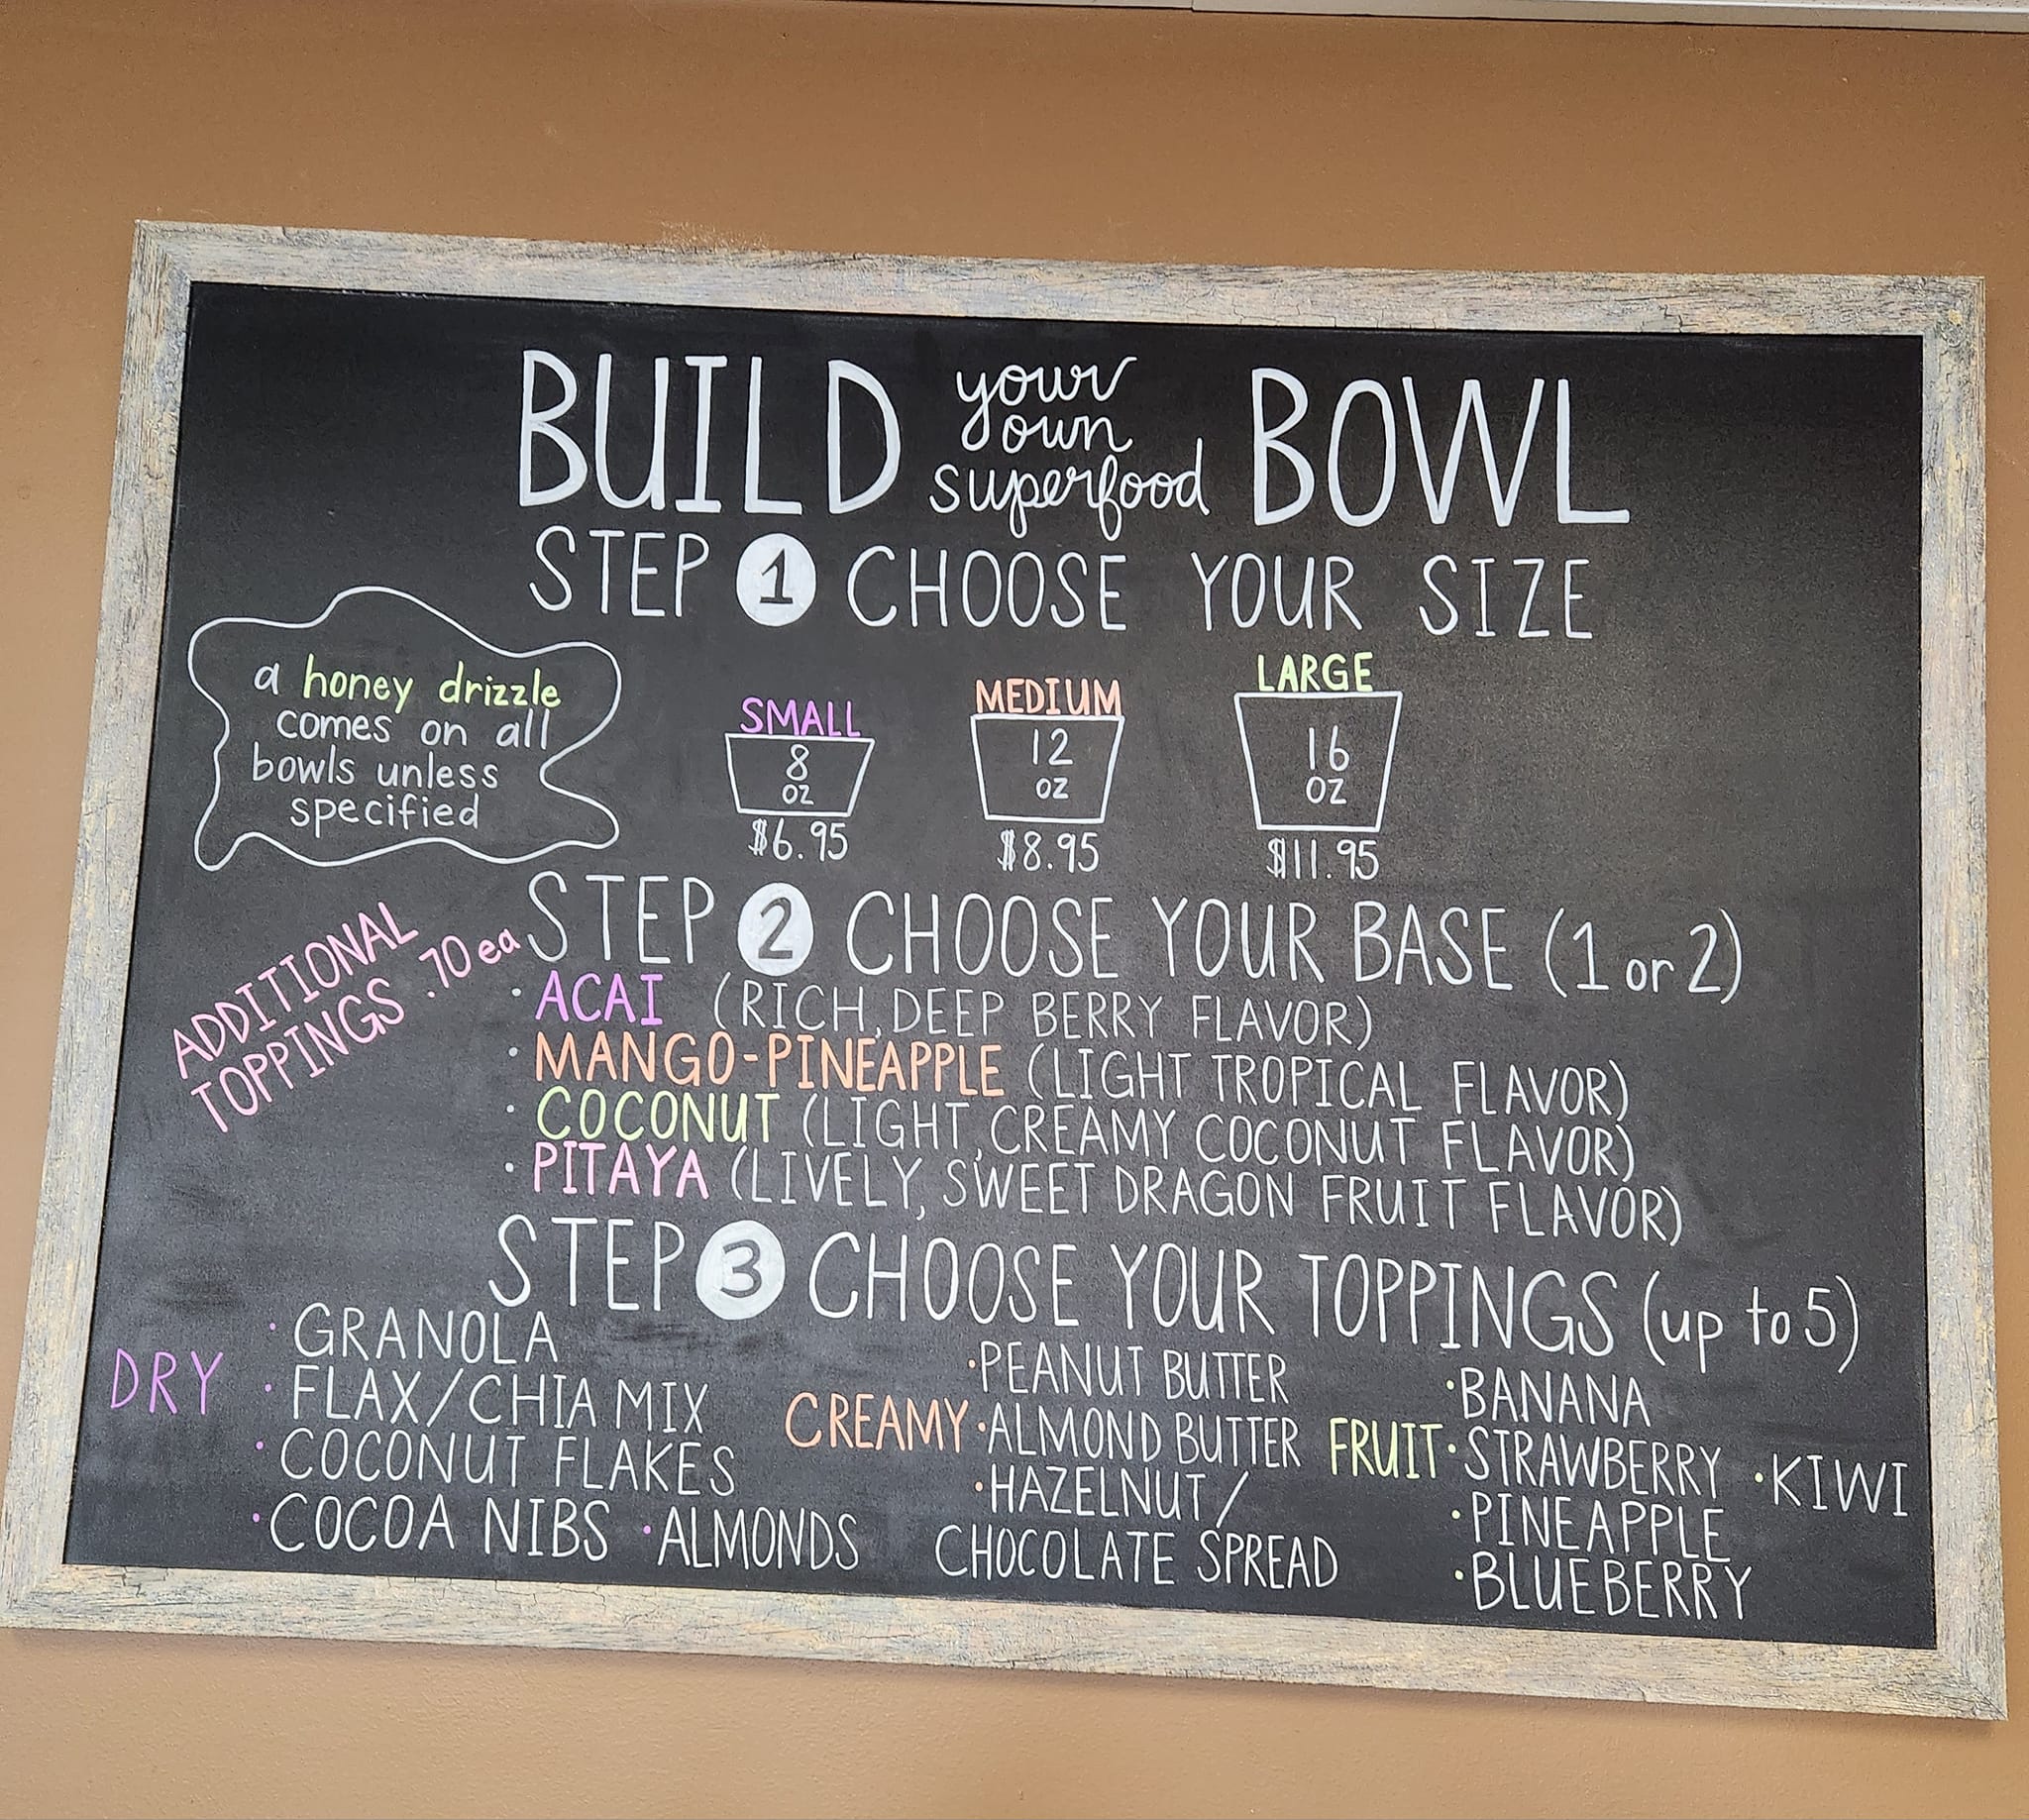 BUILD your own superfood BOWL
STEP 1 CHOOSE YOUR SIZE
a honey drizzle
comes on all
bowls unless
specified
SMALL
8
OZ
$6.95
MEDIUM
12
OZ
$8.95
LARGE
16
OZ
$11.95
ADDITIONAL
TOPPINGS .70 ea
STEP 2 CHOOSE YOUR BASE (1 or 2)
• ACAI (RICH, DEEP BERRY FLAVOR)
• MANGO-PINEAPPLE (LIGHT TROPICAL FLAVOR)
• COCONUT (LIGHT, CREAMY COCONUT FLAVOR)
• PITAYA (LIVELY, SWEET DRAGON FRUIT FLAVOR)
STEP 3 CHOOSE YOUR TOPPINGS (up to 5)
DRY
• GRANOLA
• FLAX/CHIA MIX
• COCONUT FLAKES
• COCOA NIBS • ALMONDS
CREAMY
• PEANUT BUTTER
• ALMOND BUTTER
• HAZELNUT/
CHOCOLATE SPREAD
FRUIT
• BANANA
• STRAWBERRY • KIWI
• PINEAPPLE
• BLUEBERRY